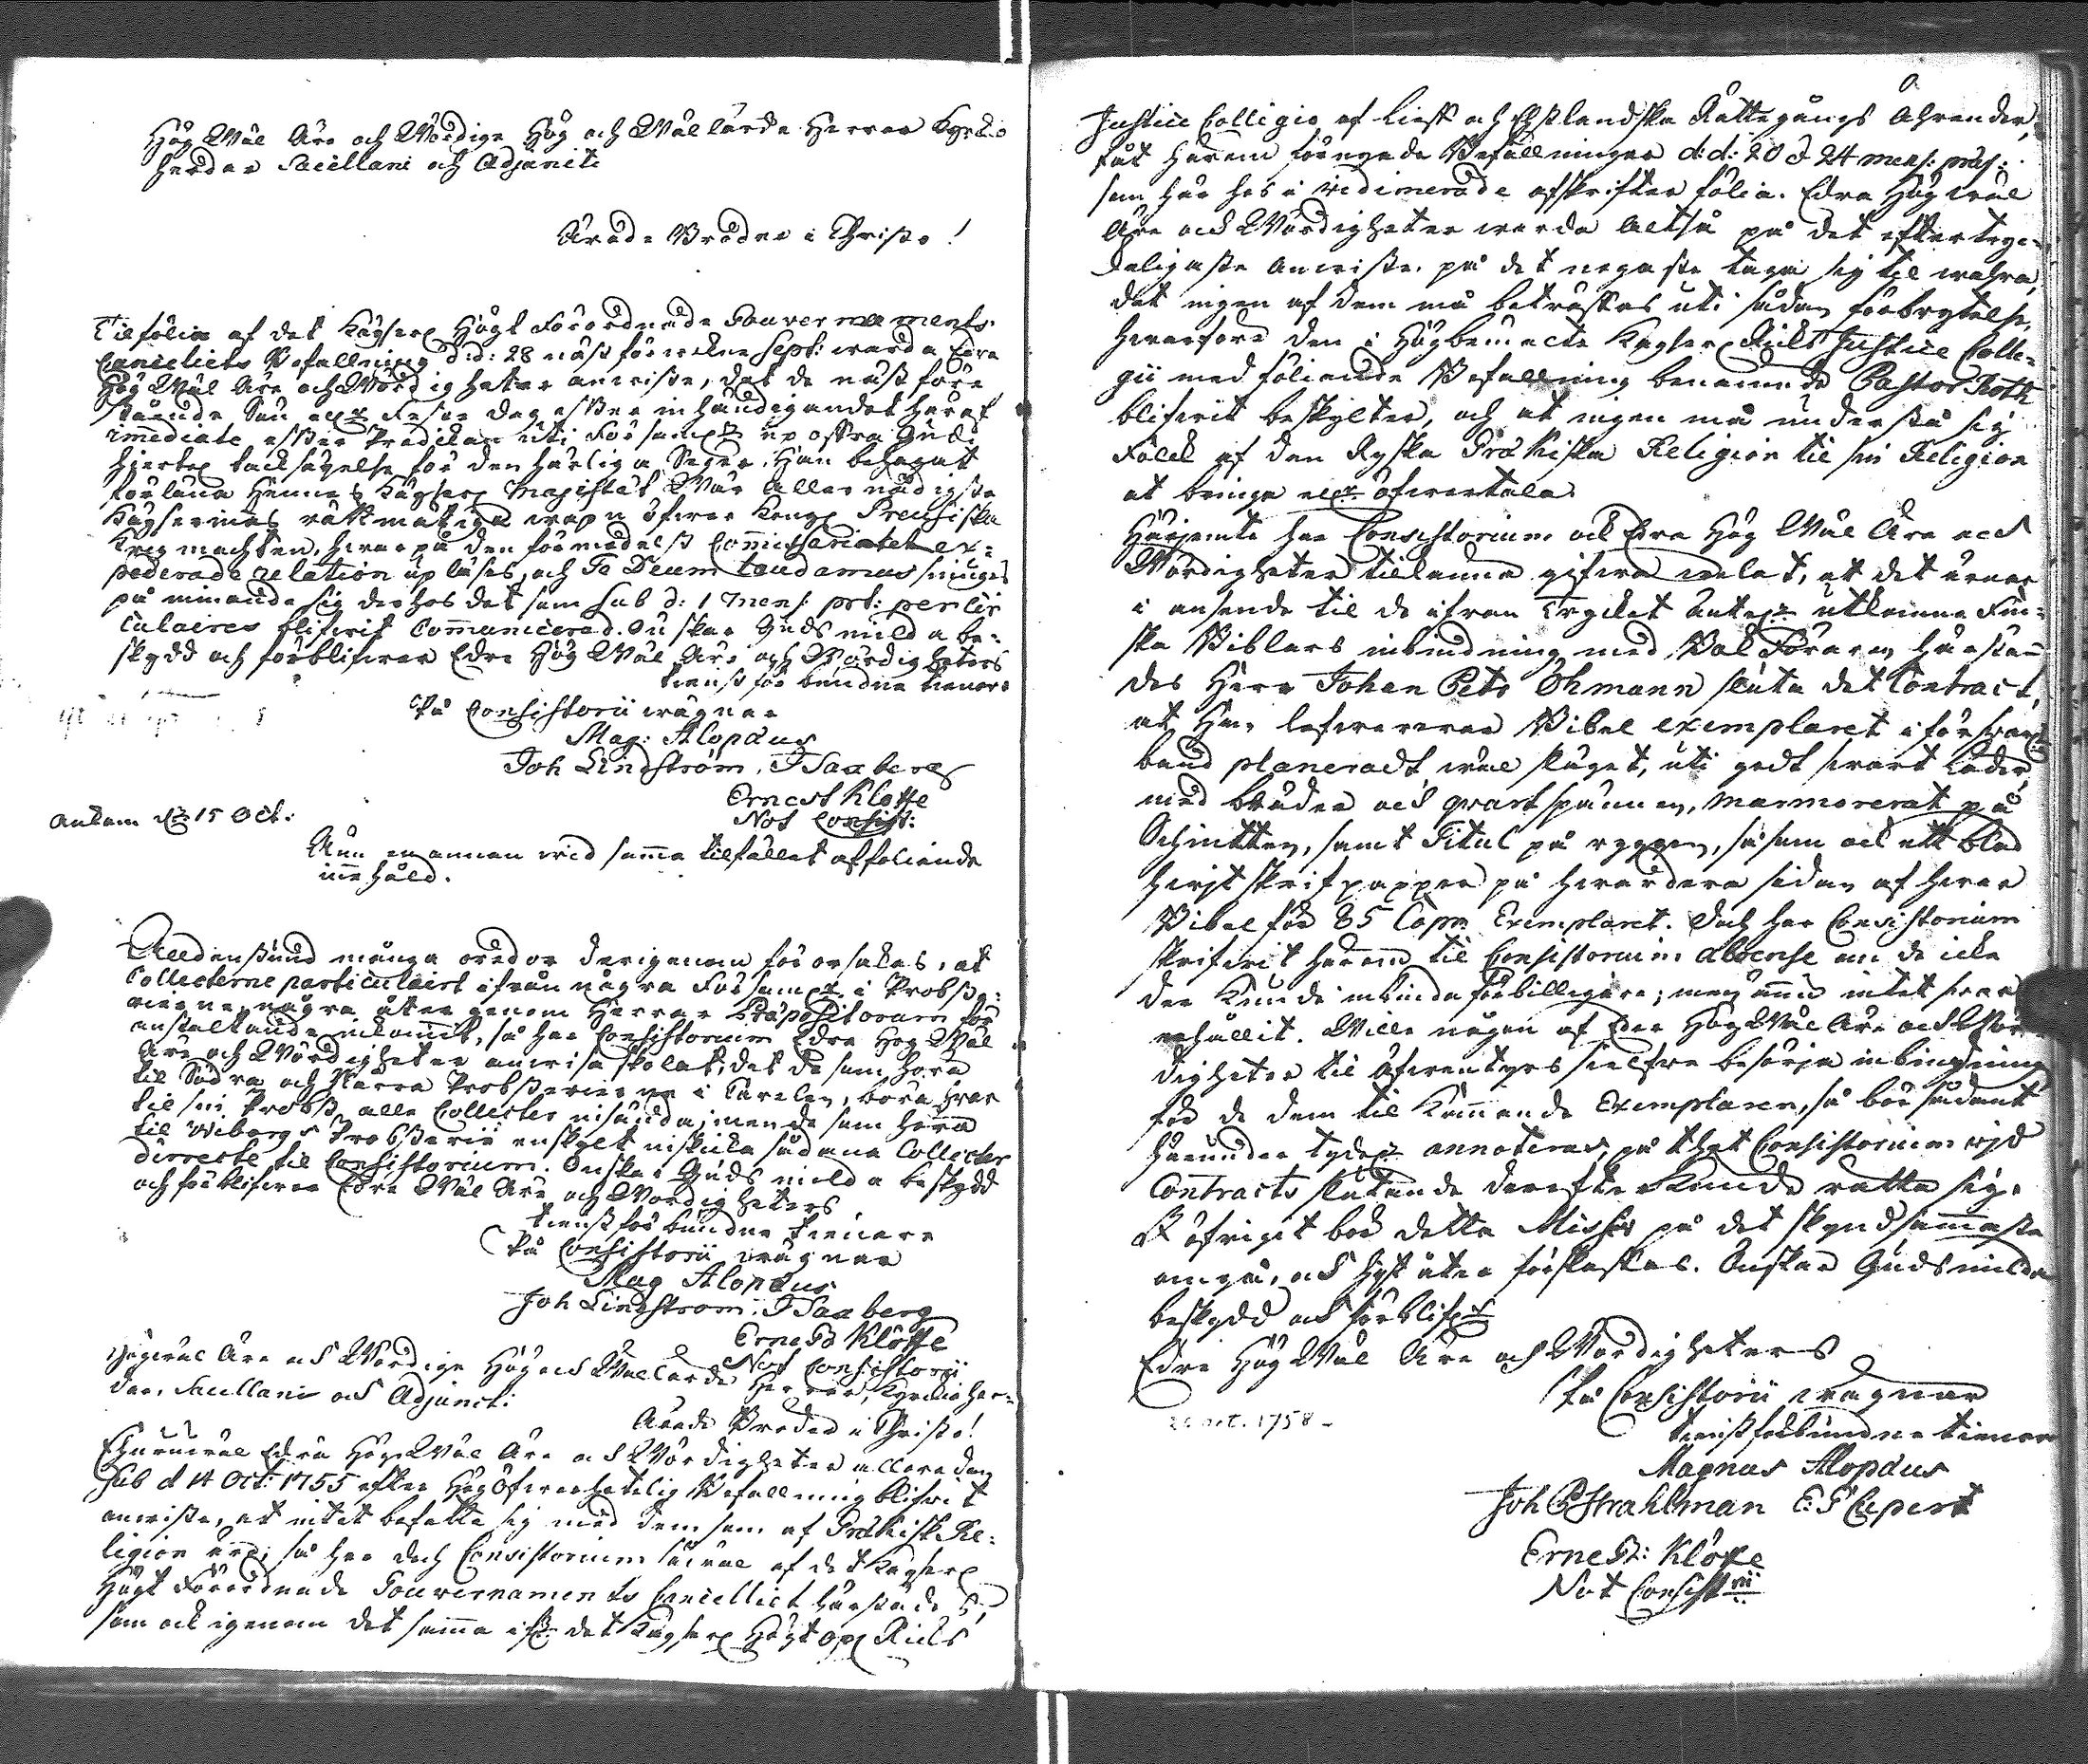 Hög Wäl Äre och Wördige Hög och Wällärde Herrar Kyrckio
herdar Sacellani och Adjuncti
Ärade Bröder i Christo!
Til följe af det Kayserl Högt Förordnade Gouvernements
Cancelliets Befallning d:d: 28 näst förwekne Sept: warda Edre
Hög Wäl Äre och Wördigheter anwiste, det de näst före
stående Sön eller Fest dag efter inhändigandet häraf
immediate efter Predikan uti Församl: up offra Gudi
hiertel tacksäyelse för den härliga Seger, Han behagat
förläna Hennes Kayserl Majestet Wår Allernådigste
Kayserinnas rättmätige wapn öfwer Kongl Preusiska
Krigsmachten, hwarpå den förmedelst Commissariatet ex-
pederade relation upläses, och Te Deum laudamus siunges
på minnande sig derhos det som sub d: 1 Mens. prt: per Cir
culaires blifwit Communicerad. Önskar Guds milda be-
skydd och förblifwer Edre Hög Wäl Äre och Wördigheters
tienst för bundne tienare
På Consistorii wägnar
Mag: Alopæus
Joh Lindström. J Saxberg
Ernest Kløffe
Not Consist:
ankom d: 15 Oct:
Ännu en annan wid samma tilfället af följande
innehåld.
Alldenstund många oredor derigenom förorsakas, at
Collecterne particulairt ifrån några Församl: i Probste-
rierne, några åter genom Herrar Præpositorum för
anstaltande inkommit, så har Consistorium Edra Hög Wäl
Äre och Wördigheter anwisa skolat, det de som höra
til Södra och Norra Probsterierne i Carelen, böra hwar
til sin Probst alla Collecter insända; men de som höra
til Wiborgs Probsterie enskylt inskicka sådana Collecter
directe til Consistorium. Önskar Guds milda beskydd
och förblifwer Edre Wäl Äre och Wördigheters
tienstförbundne tienare
På Consistorii wägnar
Mag Alopæus
Joh Lindström. J Saxberg
Ernest Kløffe
Not Consistorii
Högwäl Äre och Wördige Hög och Wällärde Herrar, Kyrckioher-
dar, Sacellani och Adjuncti:
Ärade Bröder i Christo!
Ehuruwäl Edra HögWäl Äre och Wördigheter allaredan
Sub d 14 Oct: 1755 efter Hög Öfwerhetelig Befallning blifwit
anwiste, at intet befatta sig med dem som af Grækisk Re-
ligion äro; så har doch Consistorium såwäl af det Kayserl
Högt Förordnade Gouvernaments Cancelliet härstädes,
som ock igenom det samma ifr: det Kayserl Högt Opl Riks
Justice Collegio af Lieff och Ehstlandska Rättegångs Ährender,
fåt härom förnyade Befallningar d:d: 20 & 24 mens: præs:
som här hos i vidimerade afskrifter följa. Edra Hög wäl
Äre och Wördigheter warda altså på det eftertryc-
keligaste anwiste, på det nogaste taga sig til wahra,
det ingen af dem må beträffas uti sådan förbrytelse,
hwarföre den i Högbemälte Kayserl Riks Justice Colle-
gii med föliande Befallning benämnde Pastor Roth
blifwit beskylter, och at ingen må understå sig
Folck af den Ryska Grækiska Religion til sin Religion
at bringa eller öfwertala.
Härjemte har Consistorium och Edra Hög Wäl Äre och
Wördigheter tilkänna gifwa welat, at det ärnar
i anseende til de ifrån Trycket utkomne Fin-
ska Biblars inbindning med Bokföraren härstä-
des Herr Johan Petr Öhmann sluta det Contract,
at Han lefwererar Bibel exemplaret i försvarl:
band planeradt, wäl slaget, uti godt swart Läder
med bräder och qwartspännen, marmorerat på
Schnitten, samt Titul på ryggen, såsom och ett blad
hwijt skrifpapper på hwardera sidan af hwar
Bibel för 85 Cop: Exemplaret. Doch har Consistorium
skrifwit härom til Consistorium Aboense om de icke
der kunde inbindas för billigare; men ännu intet swar
erhållit. Wille någon af Eder HögWäl Äre och Wör
digheter til äfwentyrs sielfwe besörja inbindning
för de dem til kommande Exemplaren, så bör sådant
härunder tydel: annoteras, på thet Consistorium wid
Contracts slutande derefter kunde rätta sig.
För öfrigit bör detta Missiv på det skyndsammaste
omgå, och hijt åter förskaffas. Önskar Guds milda
beskydd och förblifwer
Edre Hög Wäl Äre och Wördigheters
På Consistorii wägnar
tienstförbundne tienare
Magnus Alopæus
Joh G Strahlman E: G Cupert
Ernest: Kløffe
Not Consistrii
20 oct. 1758